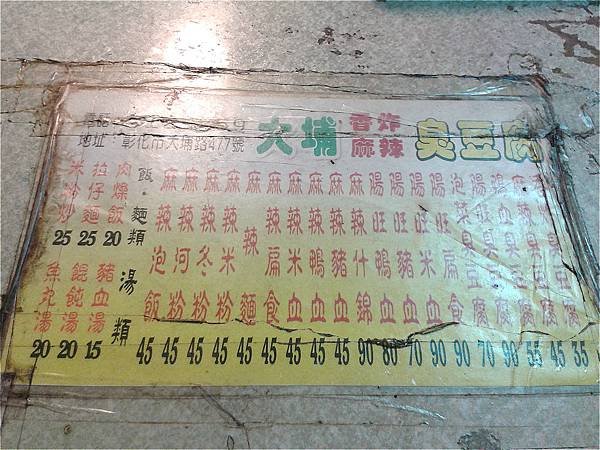 地址：彰化市大埔路477號
大埔 香炸麻辣 臭豆腐
香炸臭豆腐 35
麻辣臭豆腐 45
鴨血臭豆腐 55
腸旺臭豆腐 90
泡菜臭豆腐 70
腸旺扁食 90
腸旺米血 90
腸旺豬血 70
腸旺鴨血 80
麻辣什錦 90
麻辣豬血 45
麻辣鴨血 45
麻辣米血 45
麻辣扁食 45
麻辣麵 45
麻辣米粉 45
麻辣冬粉 45
麻辣河粉 45
麻辣泡飯 45
飯．麵類
肉燥飯 20
拉仔麵 25
米粉炒 25
湯類
豬血湯 15
餛飩湯 20
魚丸湯 20